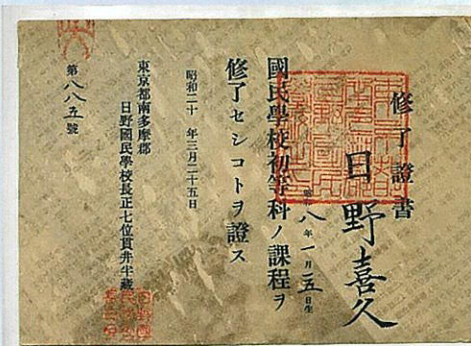 修了證書
日野喜久
昭和八年一月一五日生
國民學校初等科ノ課程ヲ
修了セシコトヲ證ス
昭和二十年三月二十五日
東京都南多摩郡
日野國民學校長正七位貫井半藏
第八八五號